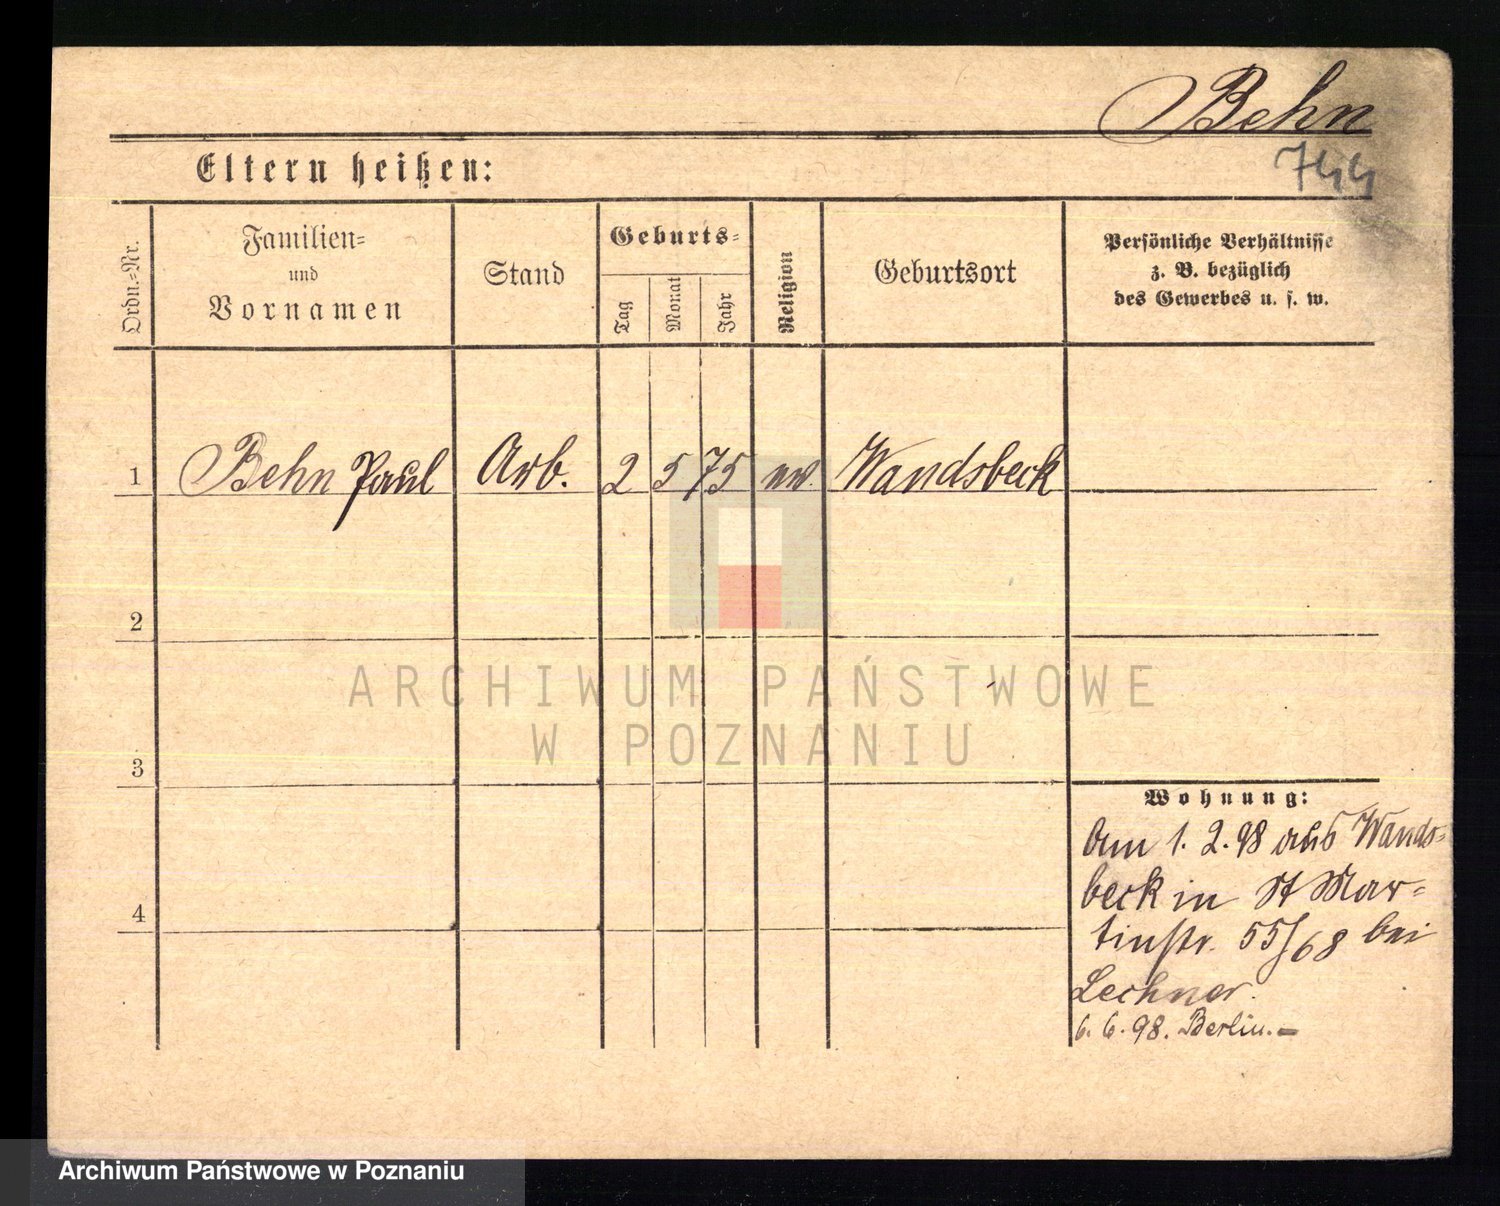 Behn
744
Eltern heißen:
Ordn.=Nr.
Familien=
und
Vornamen
Stand
Geburts=
Tag
Monat
Jahr
Religion
Geburtsort
Persönliche Verhältnisse
z. B. bezüglich
des Gewerbes u. s. w.
1 Behn Paul Arb. 2 5 75 ev. Wandsbeck
2
3
4
ARCHIWUM PAŃSTWOWE
W POZNANIU
Wohnung:
Am 1. 2. 98 aus Wands=
beck in St Mar=
tinstr. 55/68 bei
Lechner.
6. 6. 98. Berlin.—
Archiwum Państwowe w Poznaniu